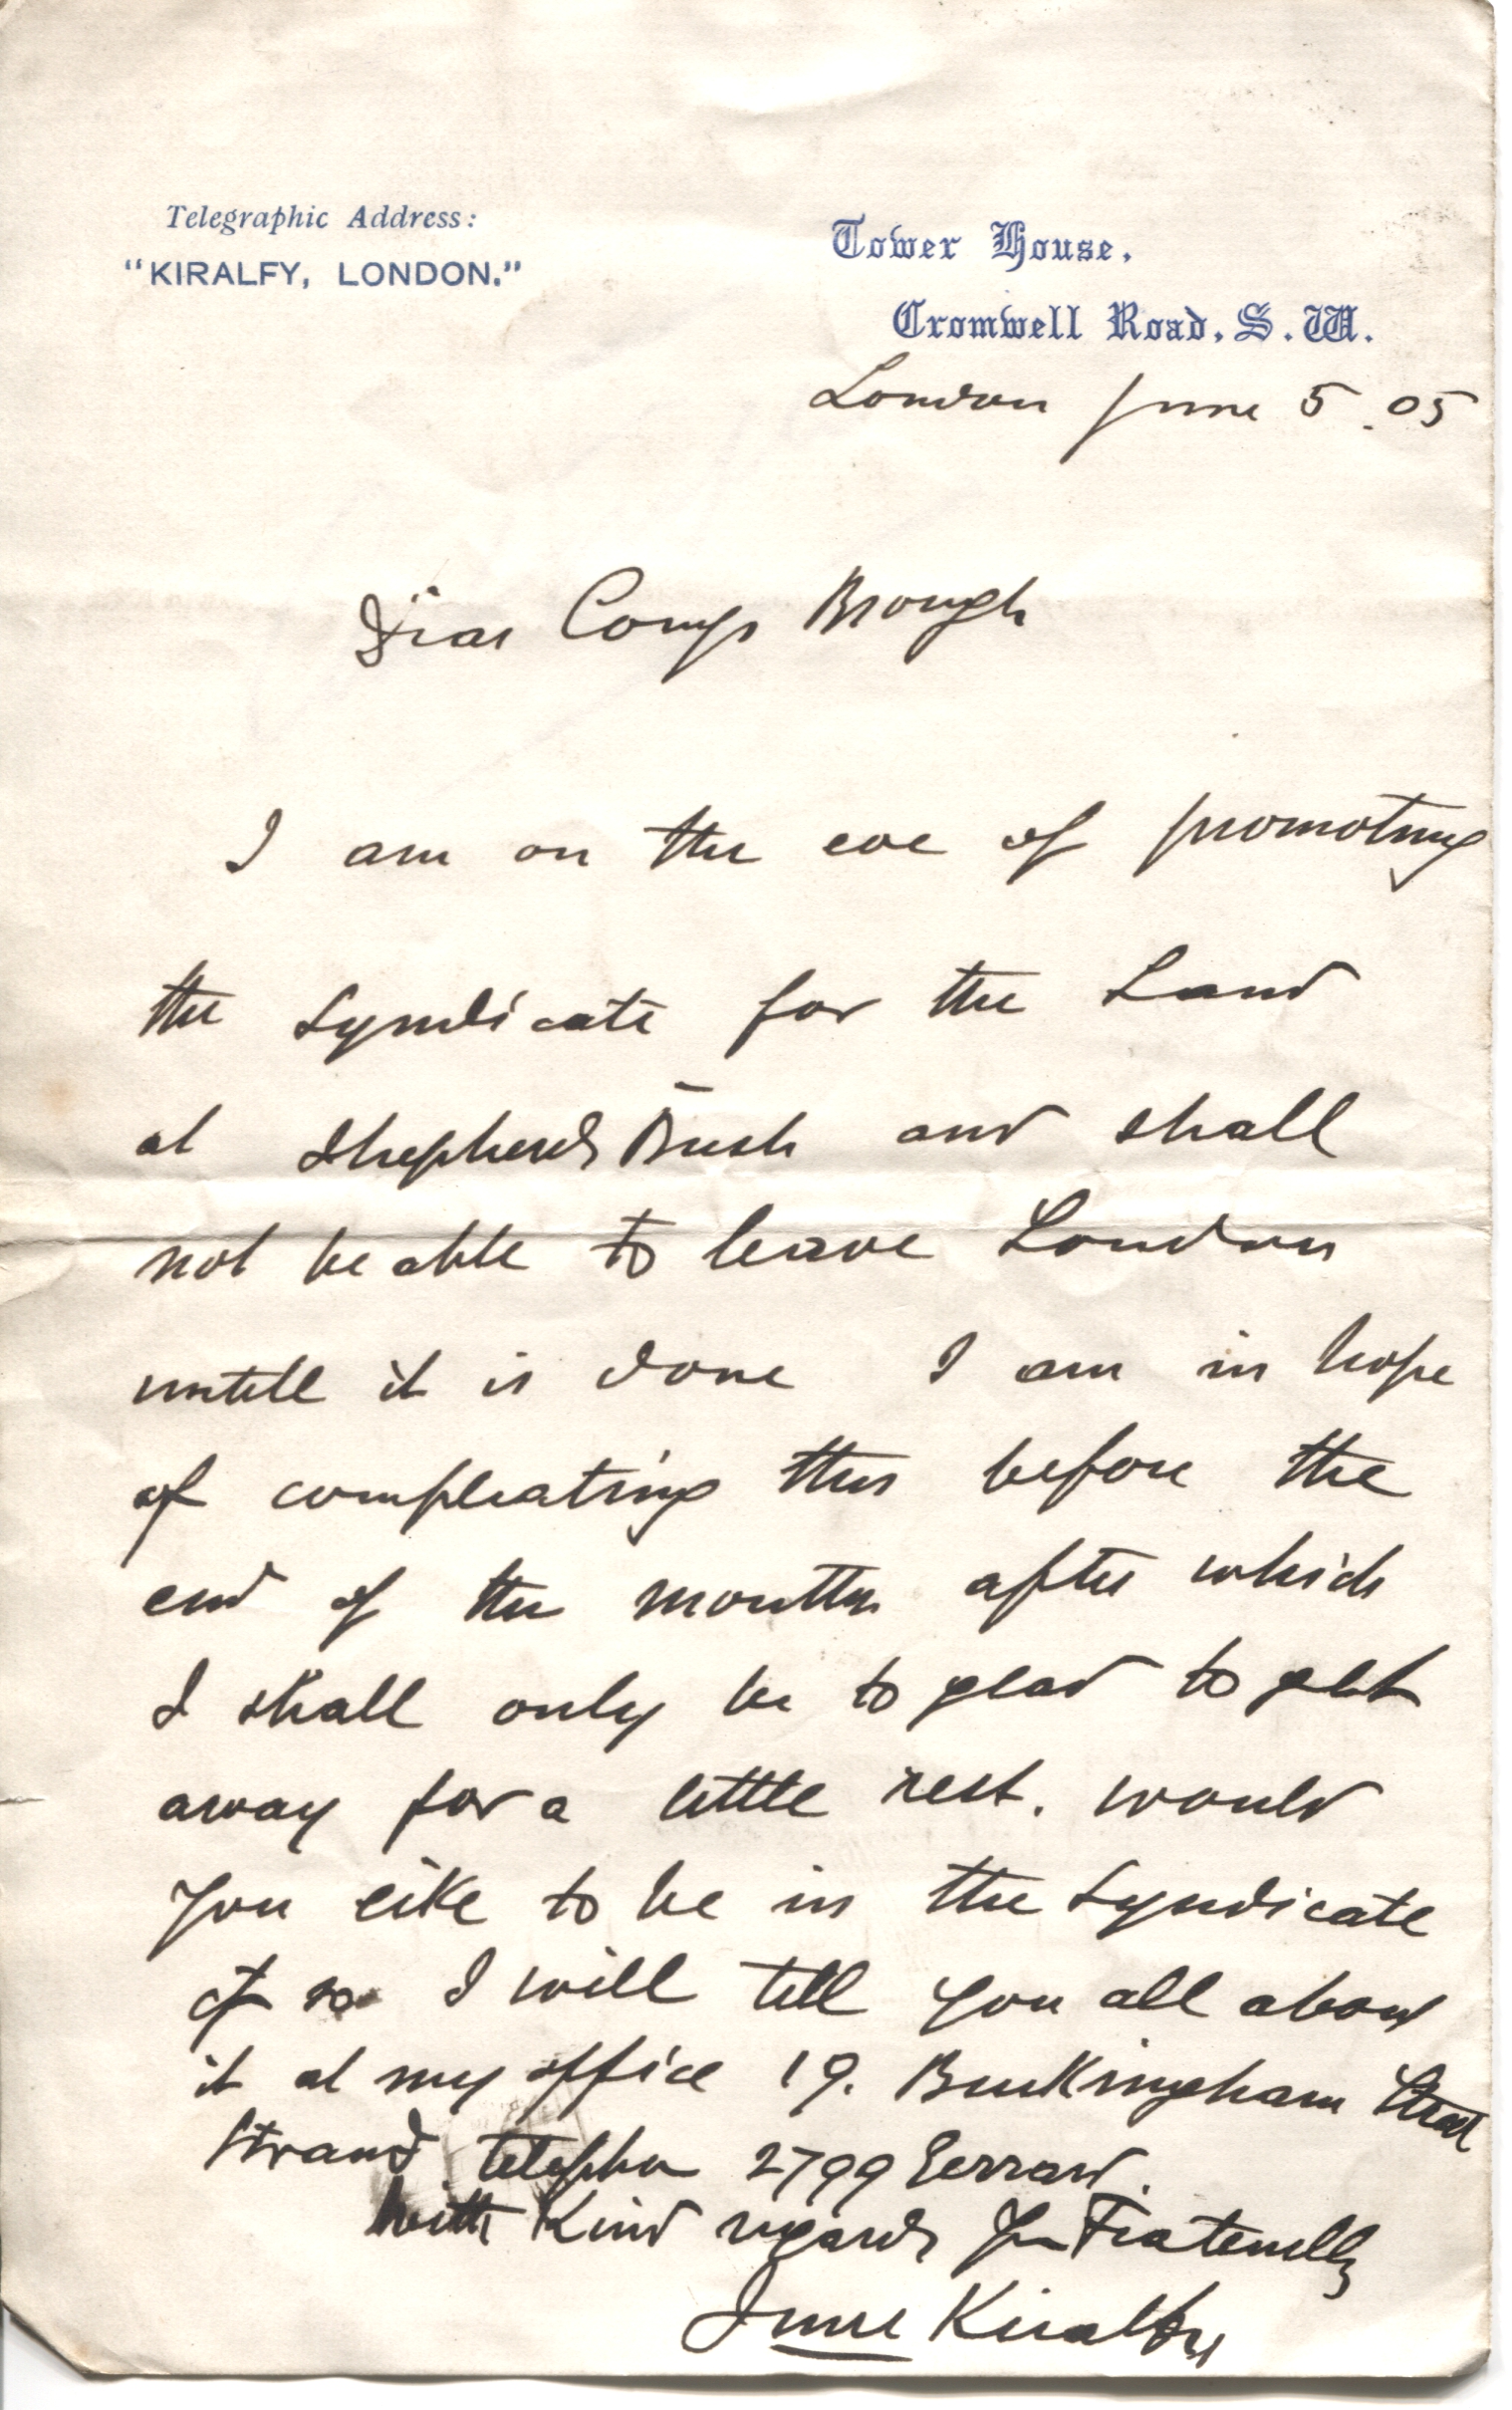 Telegraphic Address:
"KIRALFY, LONDON."
Tower House,
Cromwell Road, S.W.
London June 5. 05
Dear Comp Brough
I am on the eve of promoting
the Syndicate for the Land
at Shepherds Bush and shall
not be able to leave London
untill it is done I am in hope
of compleating this before the
end of the month after which
I shall only be to glad to get
away for a little rest. would
you like to be in the Syndicate
if so I will tell you all about
it at my office 19. Buckingham Street
Strand telepho 2799 Gerrard.
With Kind regards Yrs Fraternally
Imre Kiralfy